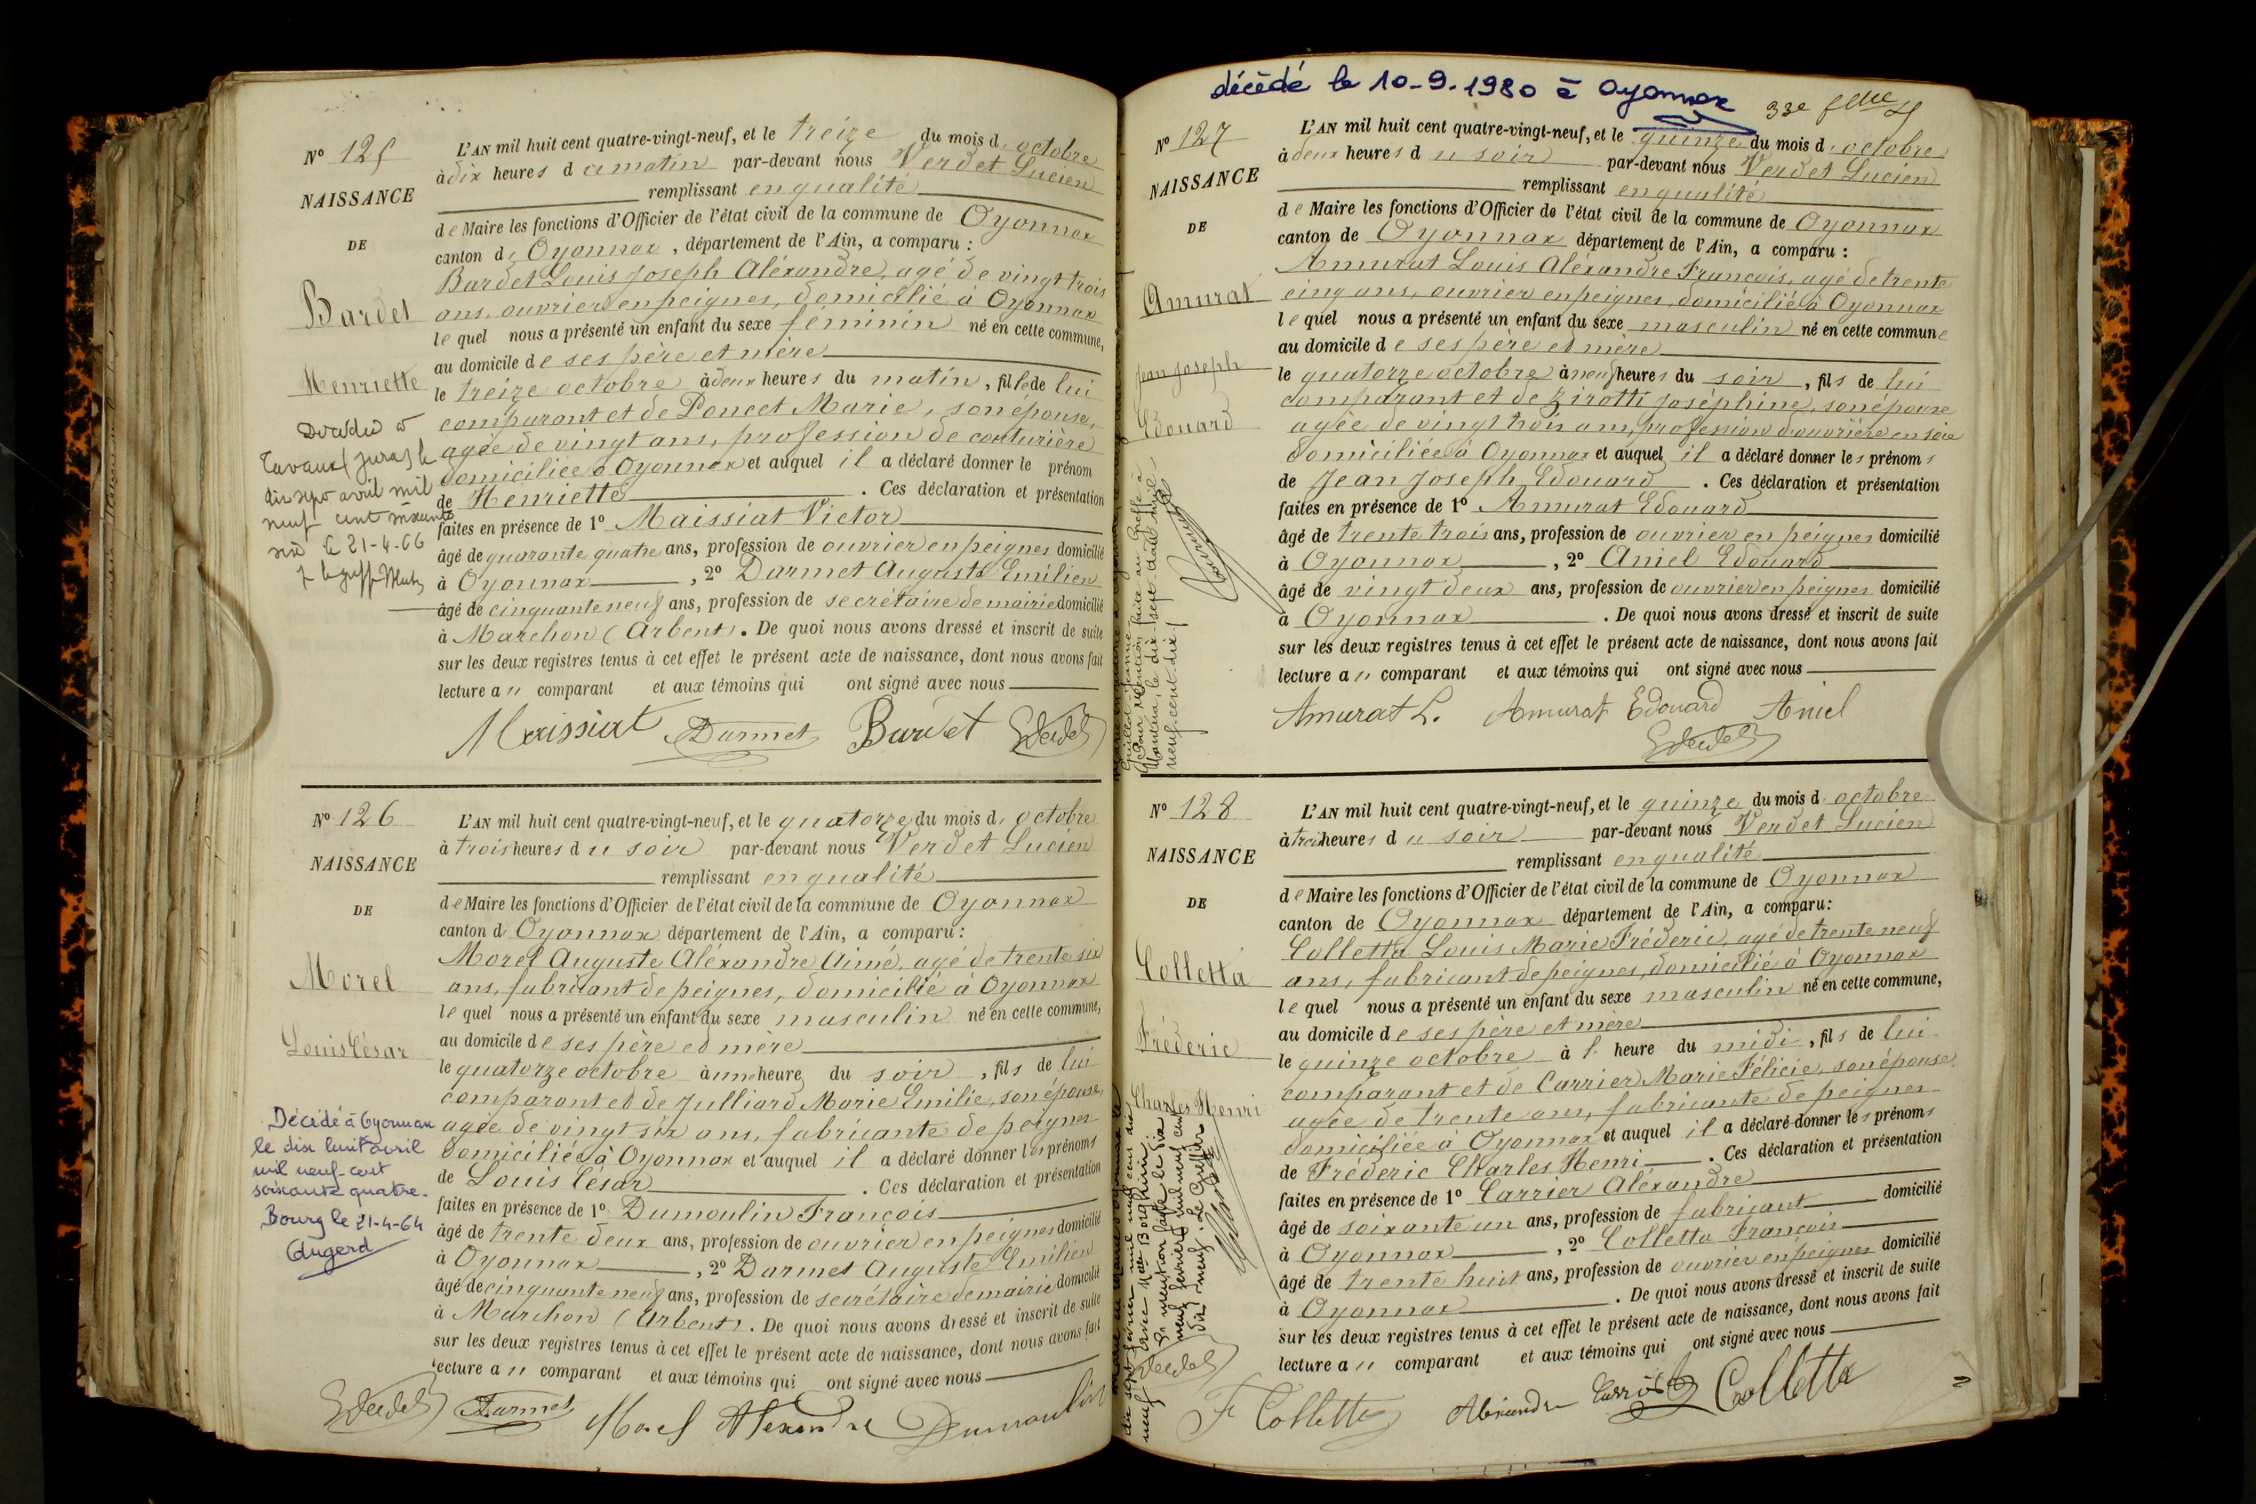 N° 125
NAISSANCE
DE
Bardet
Henriette
Décédée à
Tavaux (Jura) le
dix sept avril mil
neuf cent soixante
six le 21-4-66
L'AN mil huit cent quatre-vingt-neuf, et le treize du mois d'octobre
à dix heures du matin par-devant nous Verdet Lucien
remplissant en qualité
de Maire les fonctions d'Officier de l'état civil de la commune de Oyonnax
canton d'Oyonnax, département de l'Ain, a comparu :
Bardet Louis Joseph Aléxandre, agé de vingt trois
ans, ouvrier en peignes, domicilié à Oyonnax
lequel nous a présenté un enfant du sexe féminin né en cette commune,
au domicile de ses père et mère
le treize octobre à deux heures du matin, fille de lui
comparant et de Poncet Marie, son épouse,
agée de vingt ans, profession de couturière
domiciliée à Oyonnax et auquel il a déclaré donner le prénom
de Henriette. Ces déclaration et présentation
faites en présence de 1° Maissiat Victor
âgé de quarante quatre ans, profession de ouvrier en peignes domicilié
à Oyonnax, 2° Darmet Auguste Emilien
âgé de cinquante neuf ans, profession de secrétaire de mairie domicilié
à Marchon (Arbent). De quoi nous avons dressé et inscrit de suite
sur les deux registres tenus à cet effet le présent acte de naissance, dont nous avons fait
lecture au comparant et aux témoins qui ont signé avec nous
Maissiat Darmet Bardet Verdet
N° 126
NAISSANCE
DE
Morel
Louis César
Décédé à Oyonnax
le dix huit avril
mil neuf cent
soixante quatre.
Bourg le 21-4-64
L'AN mil huit cent quatre-vingt-neuf, et le quatorze du mois d'octobre
à trois heures du soir par-devant nous Verdet Lucien
remplissant en qualité
de Maire les fonctions d'Officier de l'état civil de la commune de Oyonnax
canton d'Oyonnax département de l'Ain, a comparu :
Morel Auguste Aléxandre Aimé, agé de trente six
ans, fabricant de peignes, domicilié à Oyonnax
lequel nous a présenté un enfant du sexe masculin né en cette commune,
au domicile de ses père et mère
le quatorze octobre à une heure du soir, fils de lui
comparant et de Julliard Marie Emilie, son épouse,
agée de vingt six ans, fabricante de peignes
domiciliée à Oyonnax et auquel il a déclaré donner les prénoms
de Louis César. Ces déclaration et présentation
faites en présence de 1° Dumoulin François
âgé de trente deux ans, profession de ouvrier en peignes domicilié
à Oyonnax, 2° Darmet Auguste Emilien
âgé de cinquante neuf ans, profession de secrétaire de mairie domicilié
à Marchon (Arbent). De quoi nous avons dressé et inscrit de suite
sur les deux registres tenus à cet effet le présent acte de naissance, dont nous avons fait
lecture au comparant et aux témoins qui ont signé avec nous
Verdet Darmet Morel Alexandre Dumoulin
décédé le 10-9-1980 à Oyonnax
N° 127
NAISSANCE
DE
Amurat
Jean Joseph
Edouard
L'AN mil huit cent quatre-vingt-neuf, et le quinze du mois d'octobre
à deux heures du soir par-devant nous Verdet Lucien
remplissant en qualité
de Maire les fonctions d'Officier de l'état civil de la commune de Oyonnax
canton de Oyonnax département de l'Ain, a comparu :
Amurat Louis Aléxandre François, agé de trente
cinq ans, ouvrier en peignes, domicilié à Oyonnax
lequel nous a présenté un enfant du sexe masculin né en cette commune
au domicile de ses père et mère
le quatorze octobre à neuf heures du soir, fils de lui
comparant et de Zirotti Joséphine, son épouse
agée de vingt trois ans, profession d'ouvrière en soie
domiciliée à Oyonnax et auquel il a déclaré donner les prénoms
de Jean Joseph Edouard. Ces déclaration et présentation
faites en présence de 1° Amurat Edouard
âgé de trente trois ans, profession de ouvrier en peignes domicilié
à Oyonnax, 2° Aniel Edouard
âgé de vingt deux ans, profession de ouvrier en peignes domicilié
à Oyonnax. De quoi nous avons dressé et inscrit de suite
sur les deux registres tenus à cet effet le présent acte de naissance, dont nous avons fait
lecture au comparant et aux témoins qui ont signé avec nous
Amurat L. Amurat Edouard Aniel
Verdet
N° 128
NAISSANCE
DE
Colletta
Fréderic
Charles Henri
L'AN mil huit cent quatre-vingt-neuf, et le quinze du mois d'octobre
à trois heures du soir par-devant nous Verdet Lucien
remplissant en qualité
de Maire les fonctions d'Officier de l'état civil de la commune de Oyonnax
canton de Oyonnax département de l'Ain, a comparu :
Colletta Louis Marie Fréderic, agé de trente neuf
ans, fabricant de peignes, domicilié à Oyonnax
lequel nous a présenté un enfant du sexe masculin né en cette commune,
au domicile de ses père et mère
le quinze octobre à l' heure du midi, fils de lui
comparant et de Carrier Marie Félicie, son épouse
agée de trente ans, fabricante de peignes
domiciliée à Oyonnax et auquel il a déclaré donner les prénoms
de Fréderic Charles Henri. Ces déclaration et présentation
faites en présence de 1° Carrier Aléxandre
âgé de soixante un ans, profession de fabricant domicilié
à Oyonnax, 2° Colletta François
âgé de trente huit ans, profession de ouvrier en peignes domicilié
à Oyonnax. De quoi nous avons dressé et inscrit de suite
sur les deux registres tenus à cet effet le présent acte de naissance, dont nous avons fait
lecture au comparant et aux témoins qui ont signé avec nous
Verdet
F Colletta Alexandre Carrier Colletta